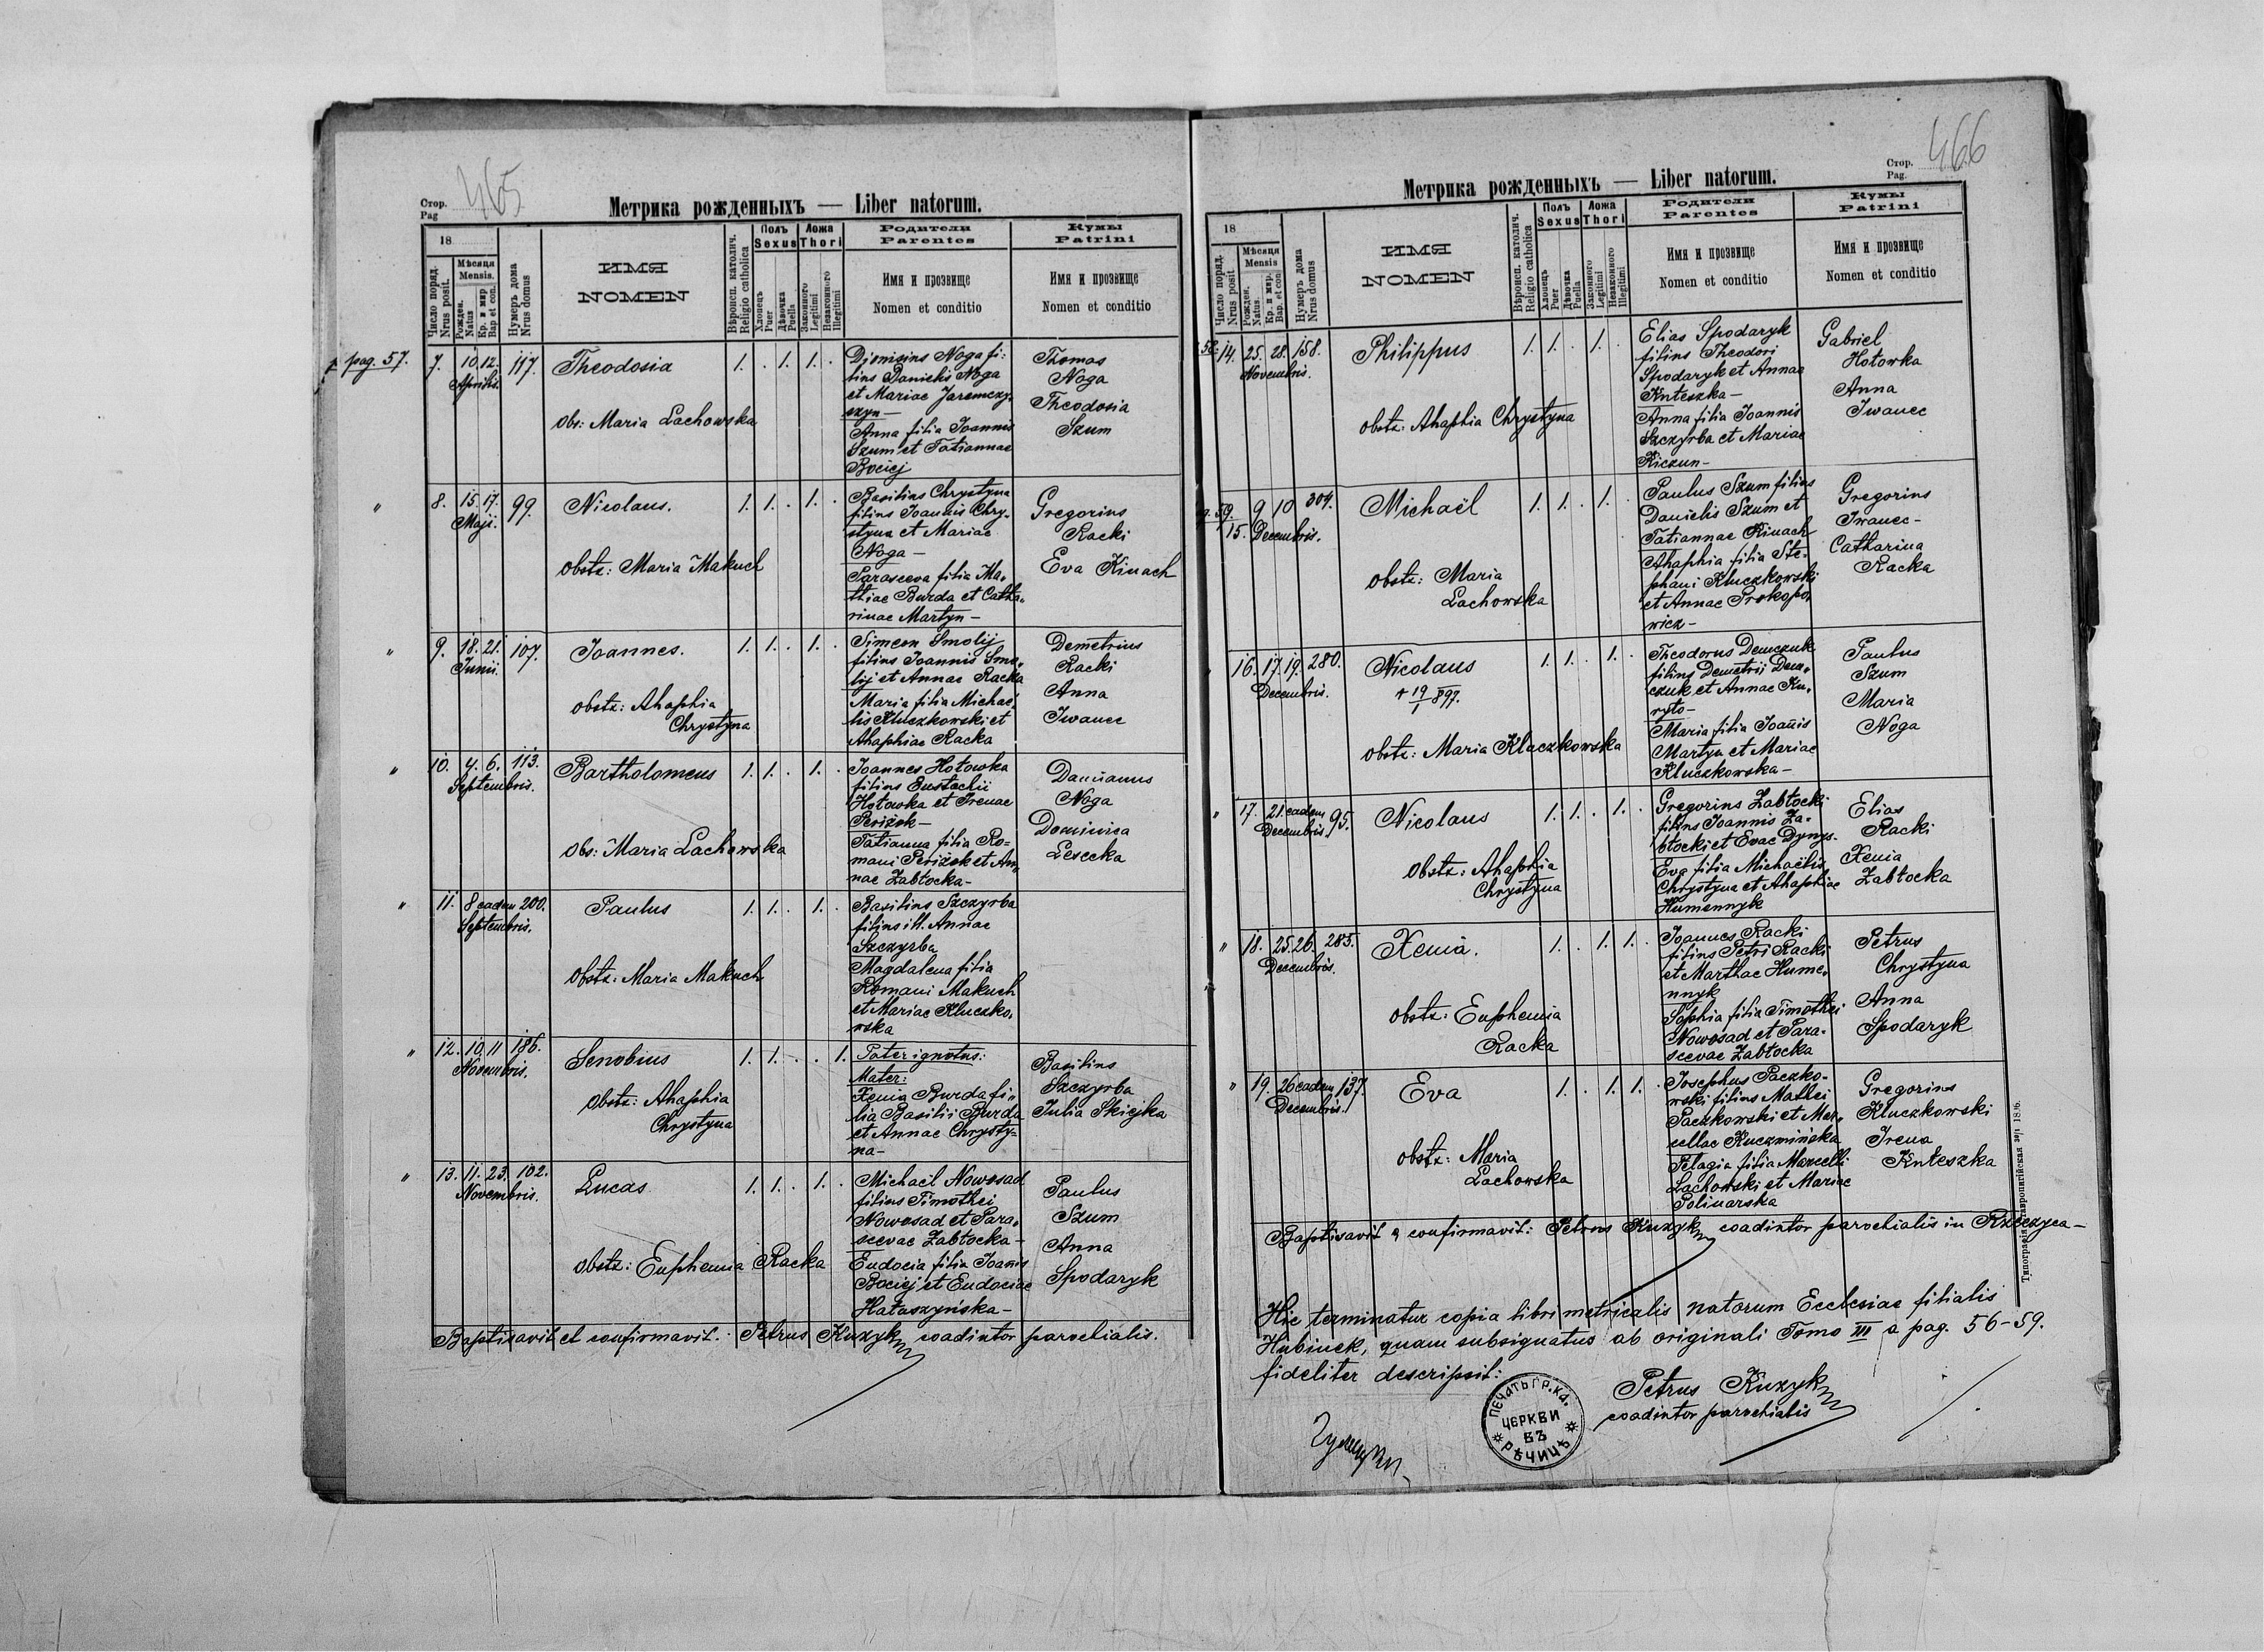 Стор.
Pag
465
Метрика рожденныхъ — Liber natorum.
18
Число поряд.
Nrus posit.
Мѣсяця
Mensis.
Рожден.
Natus
Кр. и мир
Bap. et con.
Нумеръ дома
Nrus domus
ИМЯ
NOMEN
Вѣроисп. католич.
Religio catholica
Полъ
Sexus
Хлопецъ
Puer
Дѣвочка
Puella
Ложа
Thori
Законного
Legitimi
Незаконного
Illegitimi
Родители
Parentes
Имя и прозвище
Nomen et conditio
Кумы
Patrini
Имя и прозвище
Nomen et conditio
pag. 57.
7. 10. 12. 117. Theodosia 1. . 1. 1. .
Aprilis.
Obs: Maria Lachowska
Dionisius Noga fi:
lius Danielis Noga
et Mariae Jaremczy:
szyn —
Anna filia Joannis
Szum et Tatiannae
Bociej
Thomas
Noga
Theodosia
Szum
" 8. 15. 17. 99. Nicolaus. 1. 1. . 1. .
Maji.
obstz: Maria Makuch
Basilius Chrystyna
filius Joannis Chry-
styna et Mariae
Noga —
Parasceva filia Ma-
thiae Burda et Catha-
rinae Martyn —
Gregorius
Racki
Eva Kinach
" 9. 18. 21. 107. Joannes. 1. 1. . 1. .
Junii.
obstz: Ahaphia
Chrystyna
Simeon Smolij
filius Joannis Smo-
lij et Annae Racka
Maria filia Michaë-
lis Kluczkowski et
Ahaphiae Racka
Demetrius
Racki
Anna
Iwanec
" 10. 4. 6. 113. Bartholomeus 1. 1. . 1. .
Septembris.
Obs: Maria Lachowska
Joannes Hotowka
filius Eustachii
Hotowka et Irenae
Perižok —
Tatianna filia Ro-
mani Perižok et An-
nae Zabłocka —
Damianus
Noga
Dominica
Lesecka
" 11. 8 eadem 200. Paulus 1. 1. . 1. .
Septembris.
Obstz: Maria Makuch
Basilius Szczyrba
filius ill. Annae
Szczyrba
Magdalena filia
Romani Makuch
et Mariae Kluczko-
wska
" 12. 10. 11 186. Senobius 1. 1. . . 1.
Novembris.
Obstz: Ahaphia
Chrystyna
Pater ignotus:
Mater:
Xenia Burda fi-
lia Basilii Burda
et Annae Chrysty-
na —
Basilius
Szczyrba
Julia Skiejka
" 13. 11. 23. 102. Lucas 1. 1. . 1. .
Novembris.
obstz: Euphemia Racka
Michaël Nowosad
filius Timothei
Nowosad et Para-
scevae Zabłocka —
Eudocia filia Joanis
Bociej et Eudociae
Hałaszyńska —
Paulus
Szum
Anna
Spodaryk
Baptisavit et confirmavit: Petrus Kuzyk coadiutor parochialis.
Стор.
Pag.
466
Метрика рожденныхъ — Liber natorum.
18
Число поряд.
Nrus posit
Мѣсяця
Mensis
Рожден.
Natus.
Кр. и мир.
Bap. et con
Нумеръ дома
Nrus domus
ИМЯ
NOMEN
Вѣроисп. католич.
Religio catholica
Полъ
Sexus
Хлопецъ
Puer
Дѣвочка
Puella
Ложа
Thori
Законного
Legitimi
Незаконного
Illegitimi
Родители
Parentes
Имя и прозвище
Nomen et conditio
Кумы
Patrini
Имя и прозвище
Nomen et conditio
58. 14. 25. 28. 158. Philippus 1. 1. . 1. .
Novembris.
obstz: Ahaphia Chrystyna
Elias Spodaryk
filius Theodori
Spodaryk et Annae
Knteszka —
Anna filia Joannis
Szczyrba et Mariae
Kiczun —
Gabriel
Hotowka
Anna
Iwanec
59. 15. 9 10 304. Michaël 1. 1. . 1. .
Decembris.
obstz: Maria
Lachowska
Paulus Szum filius
Danielis Szum et
Tatiannae Kinach
Ahaphia filia Ste-
phani Kluczkowski
et Annae Prokopo-
wicz —
Gregorius
Iwanec —
Catharina
Racka
" 16. 17. 19. 280. Nicolaus 1. 1. . 1. .
Decembris.
+ 19/1 897.
obstz: Maria Kluczkowska
Theodorus Demczuk
filius Demetrii Dem-
czuk et Annae Ku-
ryło —
Maria filia Joañis
Martyn et Mariae
Kluczkowska —
Paulus
Szum
Maria
Noga
" 17. 21. eadem 95. Nicolaus 1. 1. . 1. .
Decembris.
Obstz: Ahaphia
Chrystyna
Gregorius Zabłocki
filius Joannis Za-
błocki et Evae Dynys.
Eva filia Michaëlis
Chrystyna et Ahaphiae
Humennyk
Elias
Racki
Xenia
Zabłocka
" 18. 25. 26. 285. Xenia. 1. . 1. 1. .
Decembris.
obstz: Euphemia
Racka
Joannes Racki
filius Petri Racki
et Marthae Hume-
nnyk
Sophia filia Timothei
Nowosad et Para-
scevae Zabłocka
Petrus
Chrystyna
Anna
Spodaryk
" 19. 26 eadem 137. Eva 1. . 1. 1. .
Decembris.
obstz: Maria
Lachowska
Josephus Paczko-
wski filius Mathei
Paczkowski et Mar-
cellae Kuczmińska
Pelagia filia Marcelli
Lachowski et Mariae
Polinarska
Gregorius
Kluczkowski
Irena
Knteszka
Baptisavit & confirmavit: Petrus Kuzyk coadiutor parochialis in Rzeczyca —
Hic terminatur copia libri metricalis natorum Ecclesiae filialis
Hubinek, quam subsignatus ab originali Tomo III a pag. 56-59.
fideliter descripsit:
Petrus Kuzyk
coadiutor parochialis
ПЕЧАТЬ ГР. КА.
ЦЕРКВИ
ВЪ
РѢЧИЦѢ